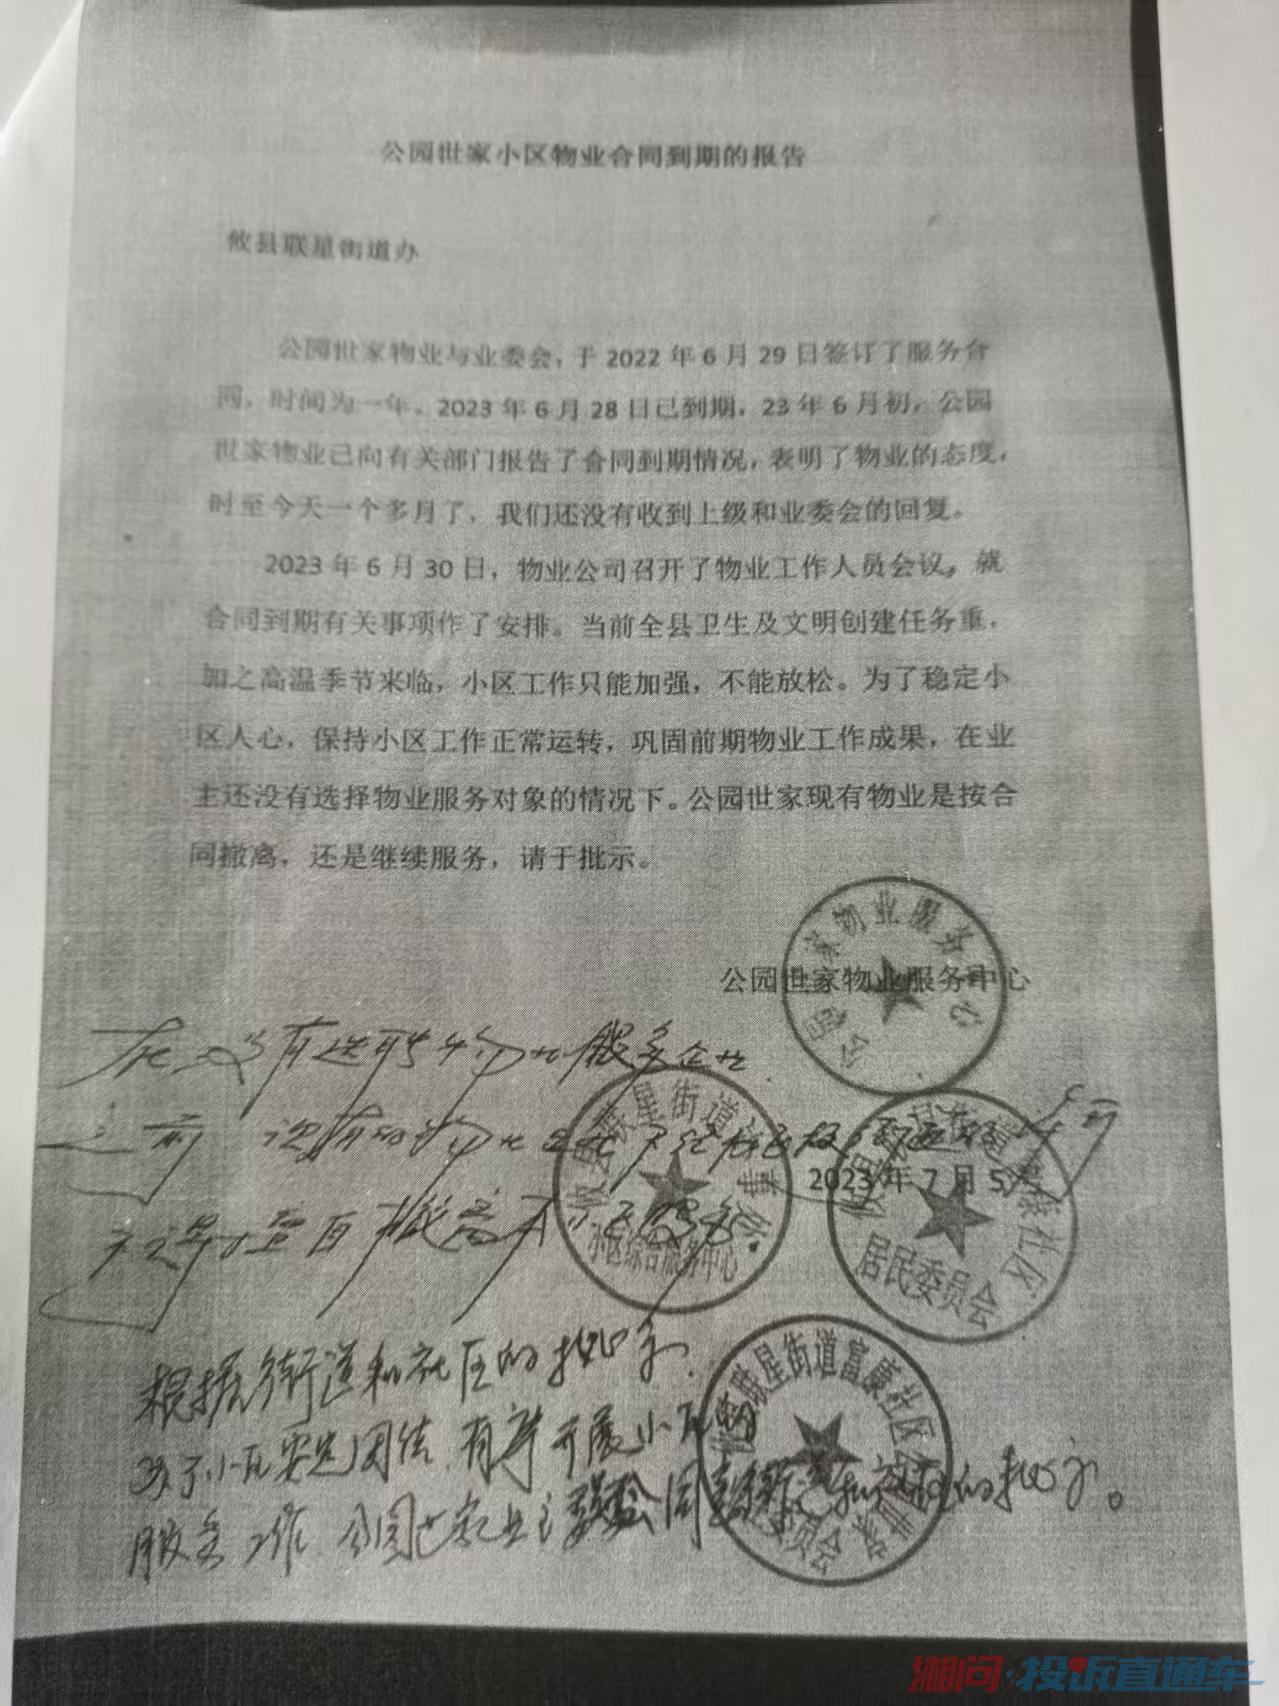 公园世家小区物业合同到期的报告
攸县联星街道办
公园世家物业与业委会，于 2022 年 6 月 29 日签订了服务合
同。时间为一年。2023 年 6 月 28 日已到期，23 年 6 月初，公园
世家物业已向有关部门报告了合同到期情况，表明了物业的态度，
时至今天一个多月了，我们还没有收到上级和业委会的回复。
2023 年 6 月 30 日，物业公司召开了物业工作人员会议，就
合同到期有关事项作了安排。当前全县卫生及文明创建任务重，
加之高温季节来临，小区工作只能加强，不能放松。为了稳定小
区人心，保持小区工作正常运转，巩固前期物业工作成果，在业
主还没有选择物业服务对象的情况下。公园世家现有物业是按合
同撤离，还是继续服务，请于批示。
公园世家物业服务中心
2023 年 7 月 5
在没有选聘物业服务企业
之前
根据街道和社区的批示，
为了小区安定团结，有序开展小区的
服务工作，公园世家业主委员会同意街道和社区的批示。
联星街道
小区综合服务中心
居民委员会
联星街道富康社区
湘问·投诉直通车